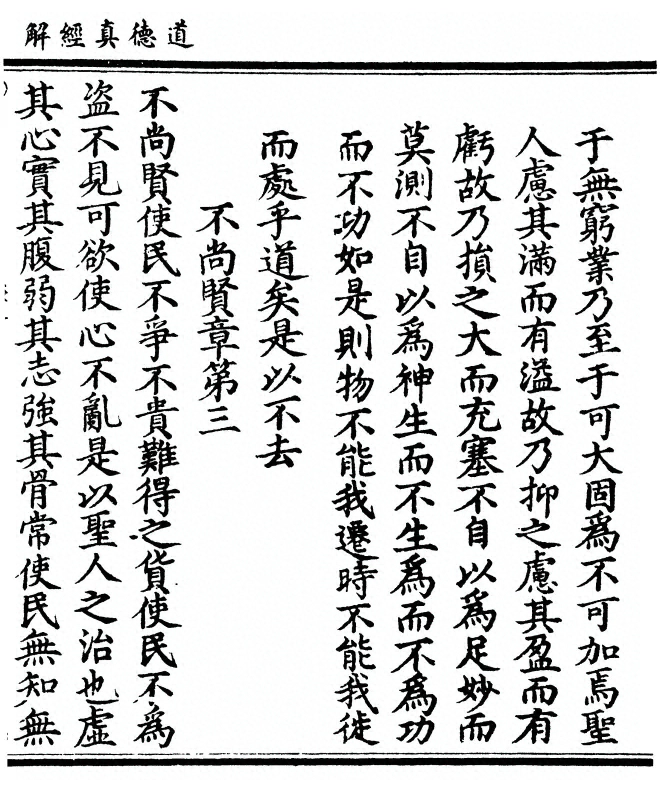 道德真經解
于無窮業乃至于可大固爲不可加焉聖
人慮其滿而有溢故乃抑之慮其盈而有
虧故乃損之大而充塞不自以爲足妙而
莫測不自以爲神生而不生爲而不爲功
而不功如是則物不能我遷時不能我徙
而處乎道矣是以不去
不尚賢章第三
不尚賢使民不爭不貴難得之貨使民不爲
盜不見可欲使心不亂是以聖人之治也虛
其心實其腹弱其志強其骨常使民無知無